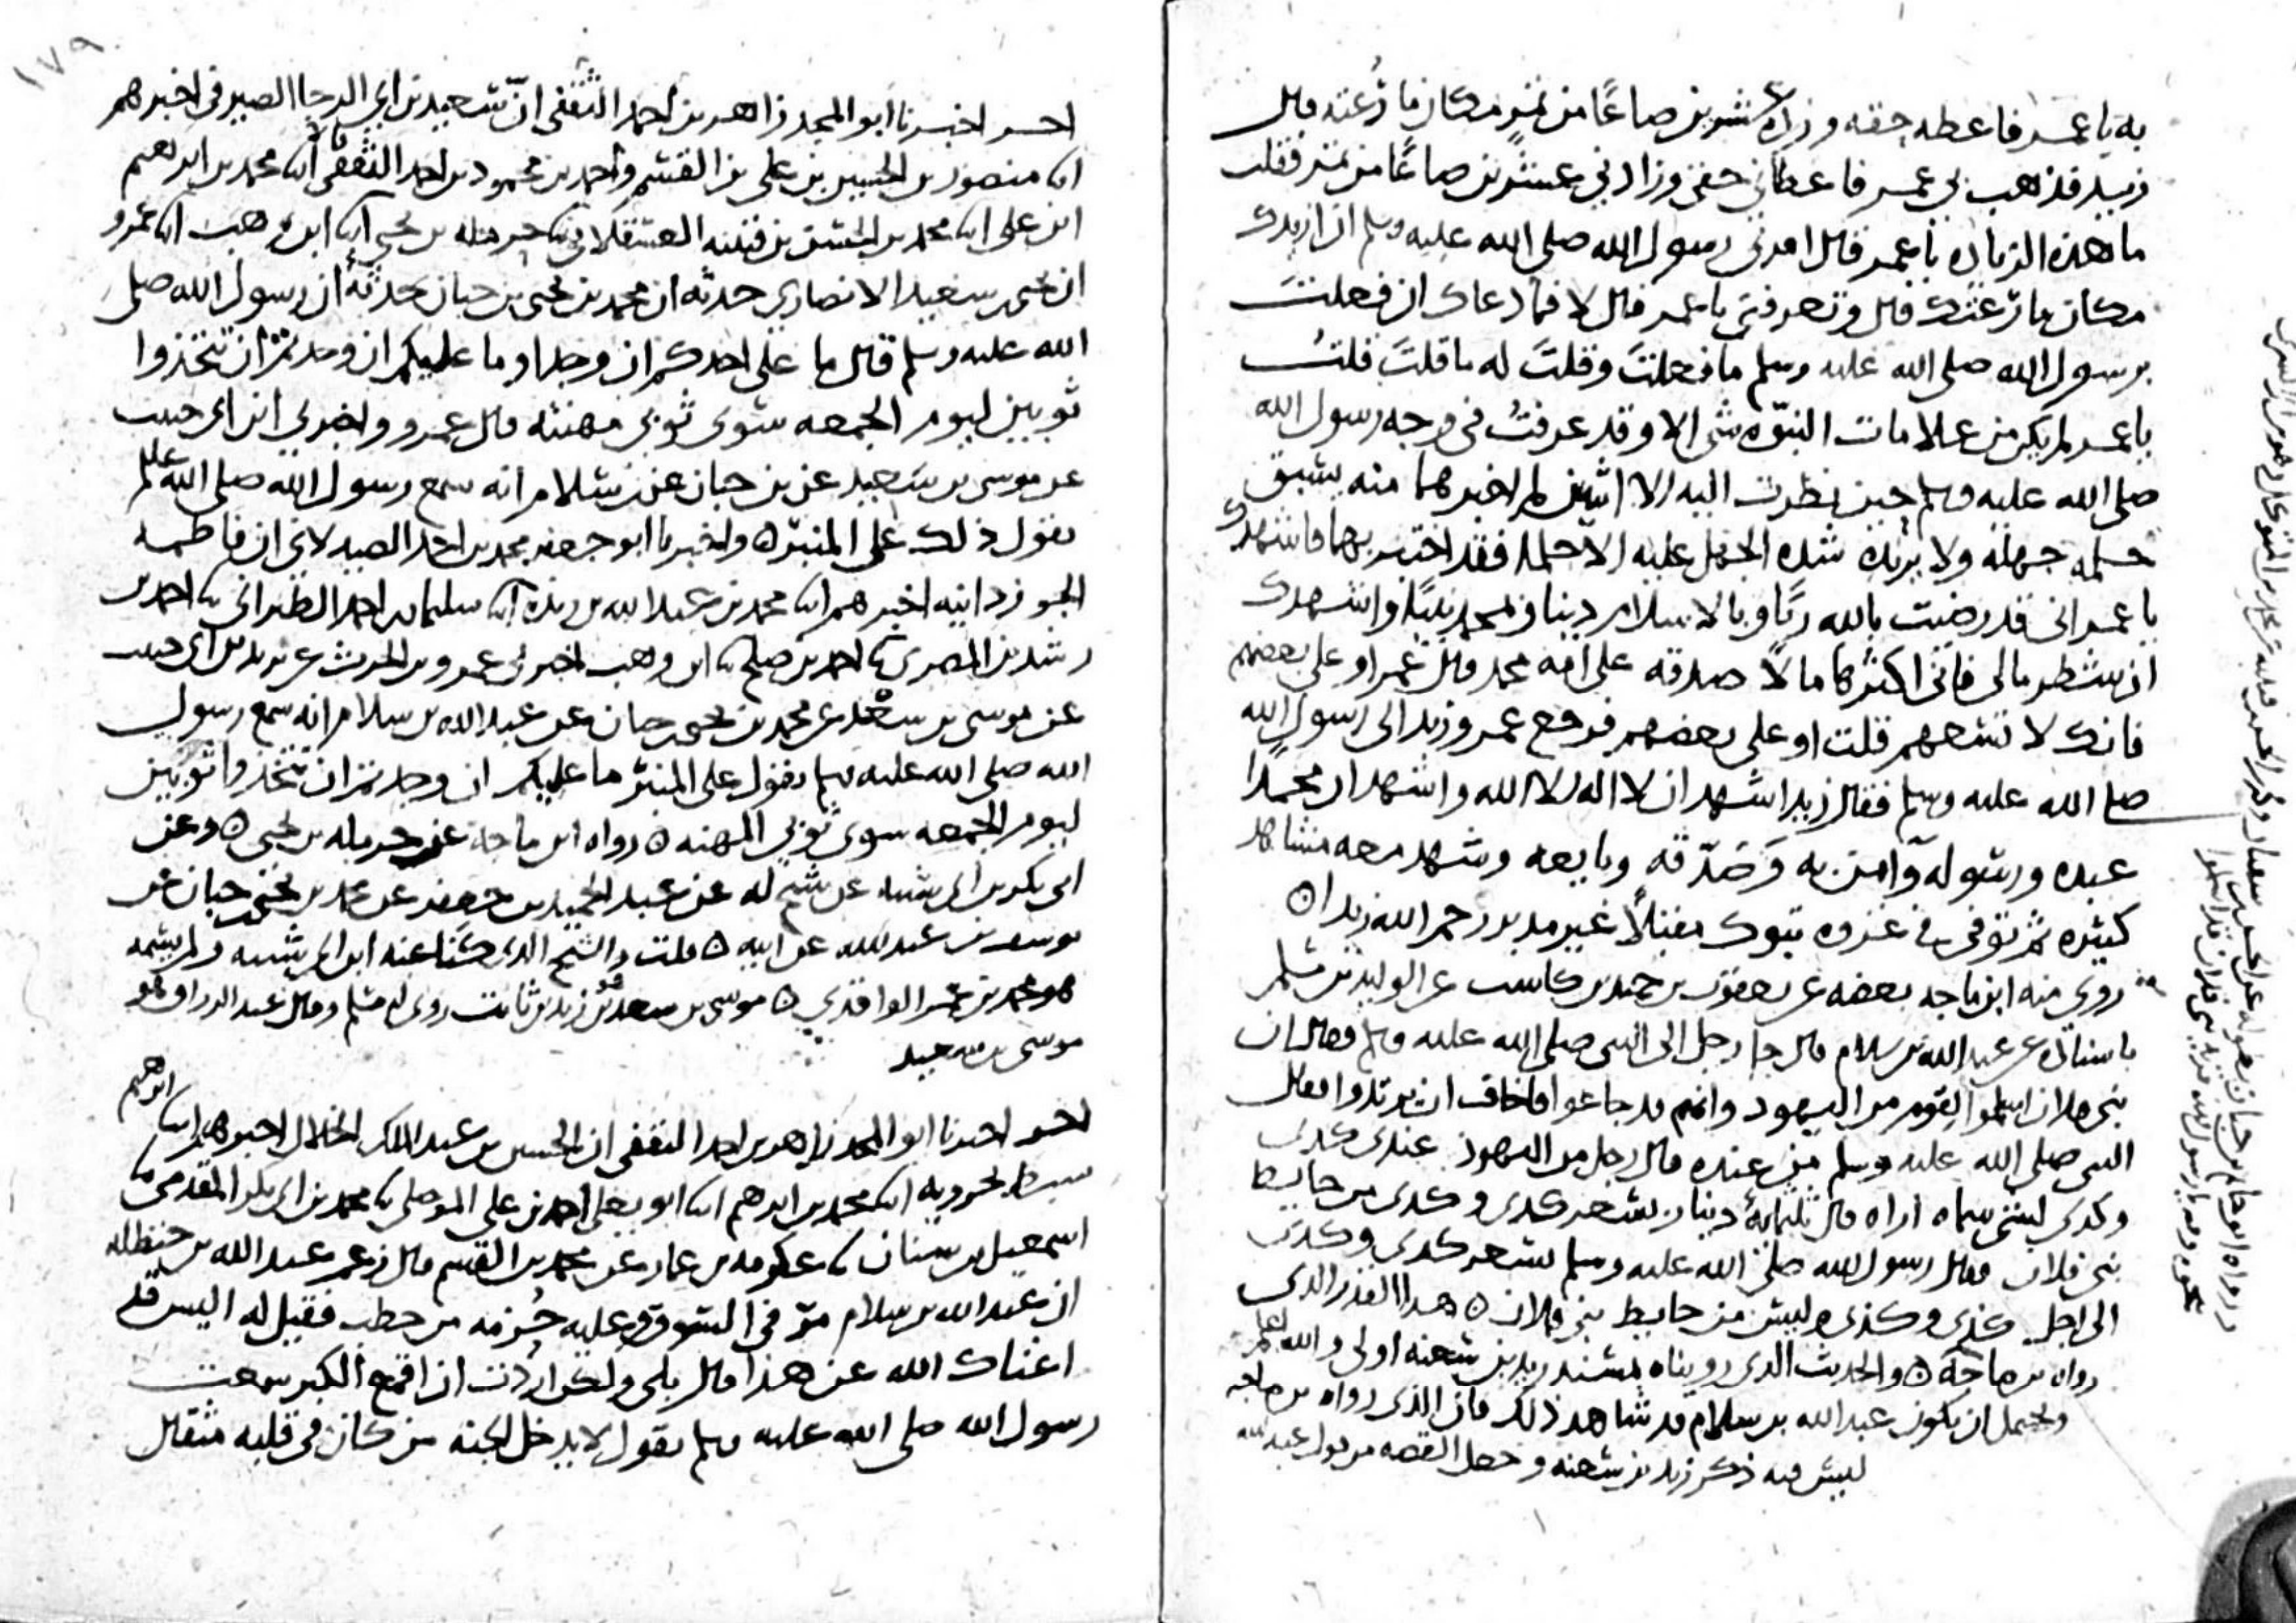 به يا عمر فاعطه حقه وزده عشرين صاعًا من تمر مكان ما رُعته قال
زيد فذهب بي عمر فاعطاني حقي وزادني عشرين صاعًا من تمر فقلت
ما هذه الزياده يا عمر قال امرني رسول الله صلى الله عليه وسلم ان ازيدك
مكان ما رُعتك قال وتعرفني يا عمر قال لا فما دعاك ان فعلتَ
برسول الله صلى الله عليه وسلم ما فعلتَ وقلتَ له ما قلتَ قلتُ
يا عمر لم يكن من علامات النبوّه شي الا وقد عرفتُ في وجه رسول الله
صلى الله عليه وسلم حين نظرت اليه الا اثنين لم اخبرهما منه يسبق
حلمه جهله ولا يزيده شده الجهل عليه الا حلما فقد اختبرتهما فاشهدك
يا عمر اني قد رضيت بالله ربًا وبالاسلام دينا وبمحمد نبيًا واشهدك
ان شطر مالي فاني اكثرها مالًا صدقه على امه محمد قال عمر او على بعضهم
فانك لا تسعهم قلت او على بعضهم فرجع عمر وزيد الى رسول الله
صلى الله عليه وسلم فقال زيد اشهد ان لا اله الا الله واشهد ان محمدًا
عبده ورسوله وآمن به وَصَدّقه وبايعه وشهد معه مشاهد
كثيره ثم توفي في غزوه تبوك مقبلًا غير مدبر رحم الله زيدا ه
روى منه ابن ماجه بعضه عن يعقوب بن حميد بن كاسب عن الوليد بن مسلم
باسناده عن عبد الله بن سلام قال جا رجل الى النبي صلى الله عليه وسلم فقال ان
بني فلان اسلموا لقوم من اليهود وانهم قد جاعوا فاخاف ان يرتدوا فقال
النبي صلى الله عليه وسلم من عنده قال رجل من اليهود عندي كدى
وكدى لشي سماه اراه قال ثلثمايهٔ دينار بسعر كدى وكدى من حايط
بني فلان فقال رسول الله صلى الله عليه وسلم بسعر كدى وكدى
الى اجل كذى وكذى وليس من حايط بني فلان ه هدا القدر الذي
رواه بن ماجه ه والحديث الذي رويناه بمسند زيد بن سعنه اولى والله اعلم
ويحتمل ان يكون عبد الله بن سلام قد شاهد ذلك فان الذي رواه بن ماجه
ليس فيه ذكر زيد بن سعنه وجعل القصه من قول عبد الله
رواه ابو حاتم بن حبان
١٧٩
اخبرنا ابو المجد زاهر بن احمد الثقفي انّ سعيد بن ابي الرجا الصيرفي اخبرهم
ابنا منصور بن الحسين بن علي بن القسم واحمد بن محمود بن احمد الثقفي قالا ابنا محمد بن ابرهيم
ابن علي ابنا محمد بن الحسن بن قتيبه العسقلاني ثنا حرمله بن يحيى ابنا ابن وهب ابنا عمرو
ان يحيى بن سعيد الانصاري حدثه ان محمد بن يحيى بن حبان حدثه ان رسول الله صلى
الله عليه وسلم قال ما على احدكم ان وجد او ما عليكم ان وجدتم ان تتخذوا
ثوبين ليوم الجمعه سوى ثوبي مهنته قال عمرو واخبرني ابن ابي حبيب
عن موسى بن سَعيد عن بن حبان عن بن سلام انه سمع رسول الله صلى الله عليه وسلم
يقول ذلك على المنبر ه واخبرنا ابو جعفر محمد بن احمد الصيدلاني ان فاطمه
الجوزدانيه اخبرهم ابنا محمد بن عبد الله بن ريذه ابنا سليمان بن احمد الطبراني ثنا احمد بن
رشدين المصري ثنا احمد بن صلح ثنا ابن وهب اخبرني عمرو بن الحرث عن يزيد بن ابي حبيب
عن موسى بن سعْد عن محمد بن يحيى بن حبان عن عبد الله بن سلام انه سمع رسول
الله صلى الله عليه وسلم يقول على المنبر ما عليكم ان وجدتم ان تتخذوا ثوبين
ليوم الجمعه سوى ثوبي المهنه ه رواه ابن ماجه عن حرمله بن يحيى ه وعن
ابي بكر بن ابي شيبه عن شيخ له عن عبد الحميد بن جعفر عن محمد بن يحيى بن حبان عن
يوسف بن عبد الله عن ابيه ه قلت والشيخ الذي كَنا عنه ابن ابي شيبه ولم يسمه
هو محمد بن عمر الواقدي ه موسى بن سعد هو بن زيد بن ثابت روى له مسلم وقال عبد الرزاق هو
موسى بن سعيد
اخبرنا ابو المجد زاهر بن احمد الثقفي ان الحسين بن عبد الملك الخلال اخبرهم ابنا ابرهيم
سبط بحرويه ابنا محمد بن ابرهيم ابنا ابو يعلى احمد بن علي الموصلي ثنا محمد بن ابي بكر المقدمي ثنا
اسمعيل بن سنان ثنا عكرمه بن عمار عن محمد بن القسم قال زعم عبد الله بن حنظله
ان عبد الله بن سلام مرّ في السوق وعليه حُزمه من حطب فقيل له اليس قد
اغناك الله عن هذا قال بلى ولكن اردت ان اقمع الكبر سمعت
رسول الله صلى الله عليه وسلم يقول لا يدخل الجنه من كان في قلبه مثقال